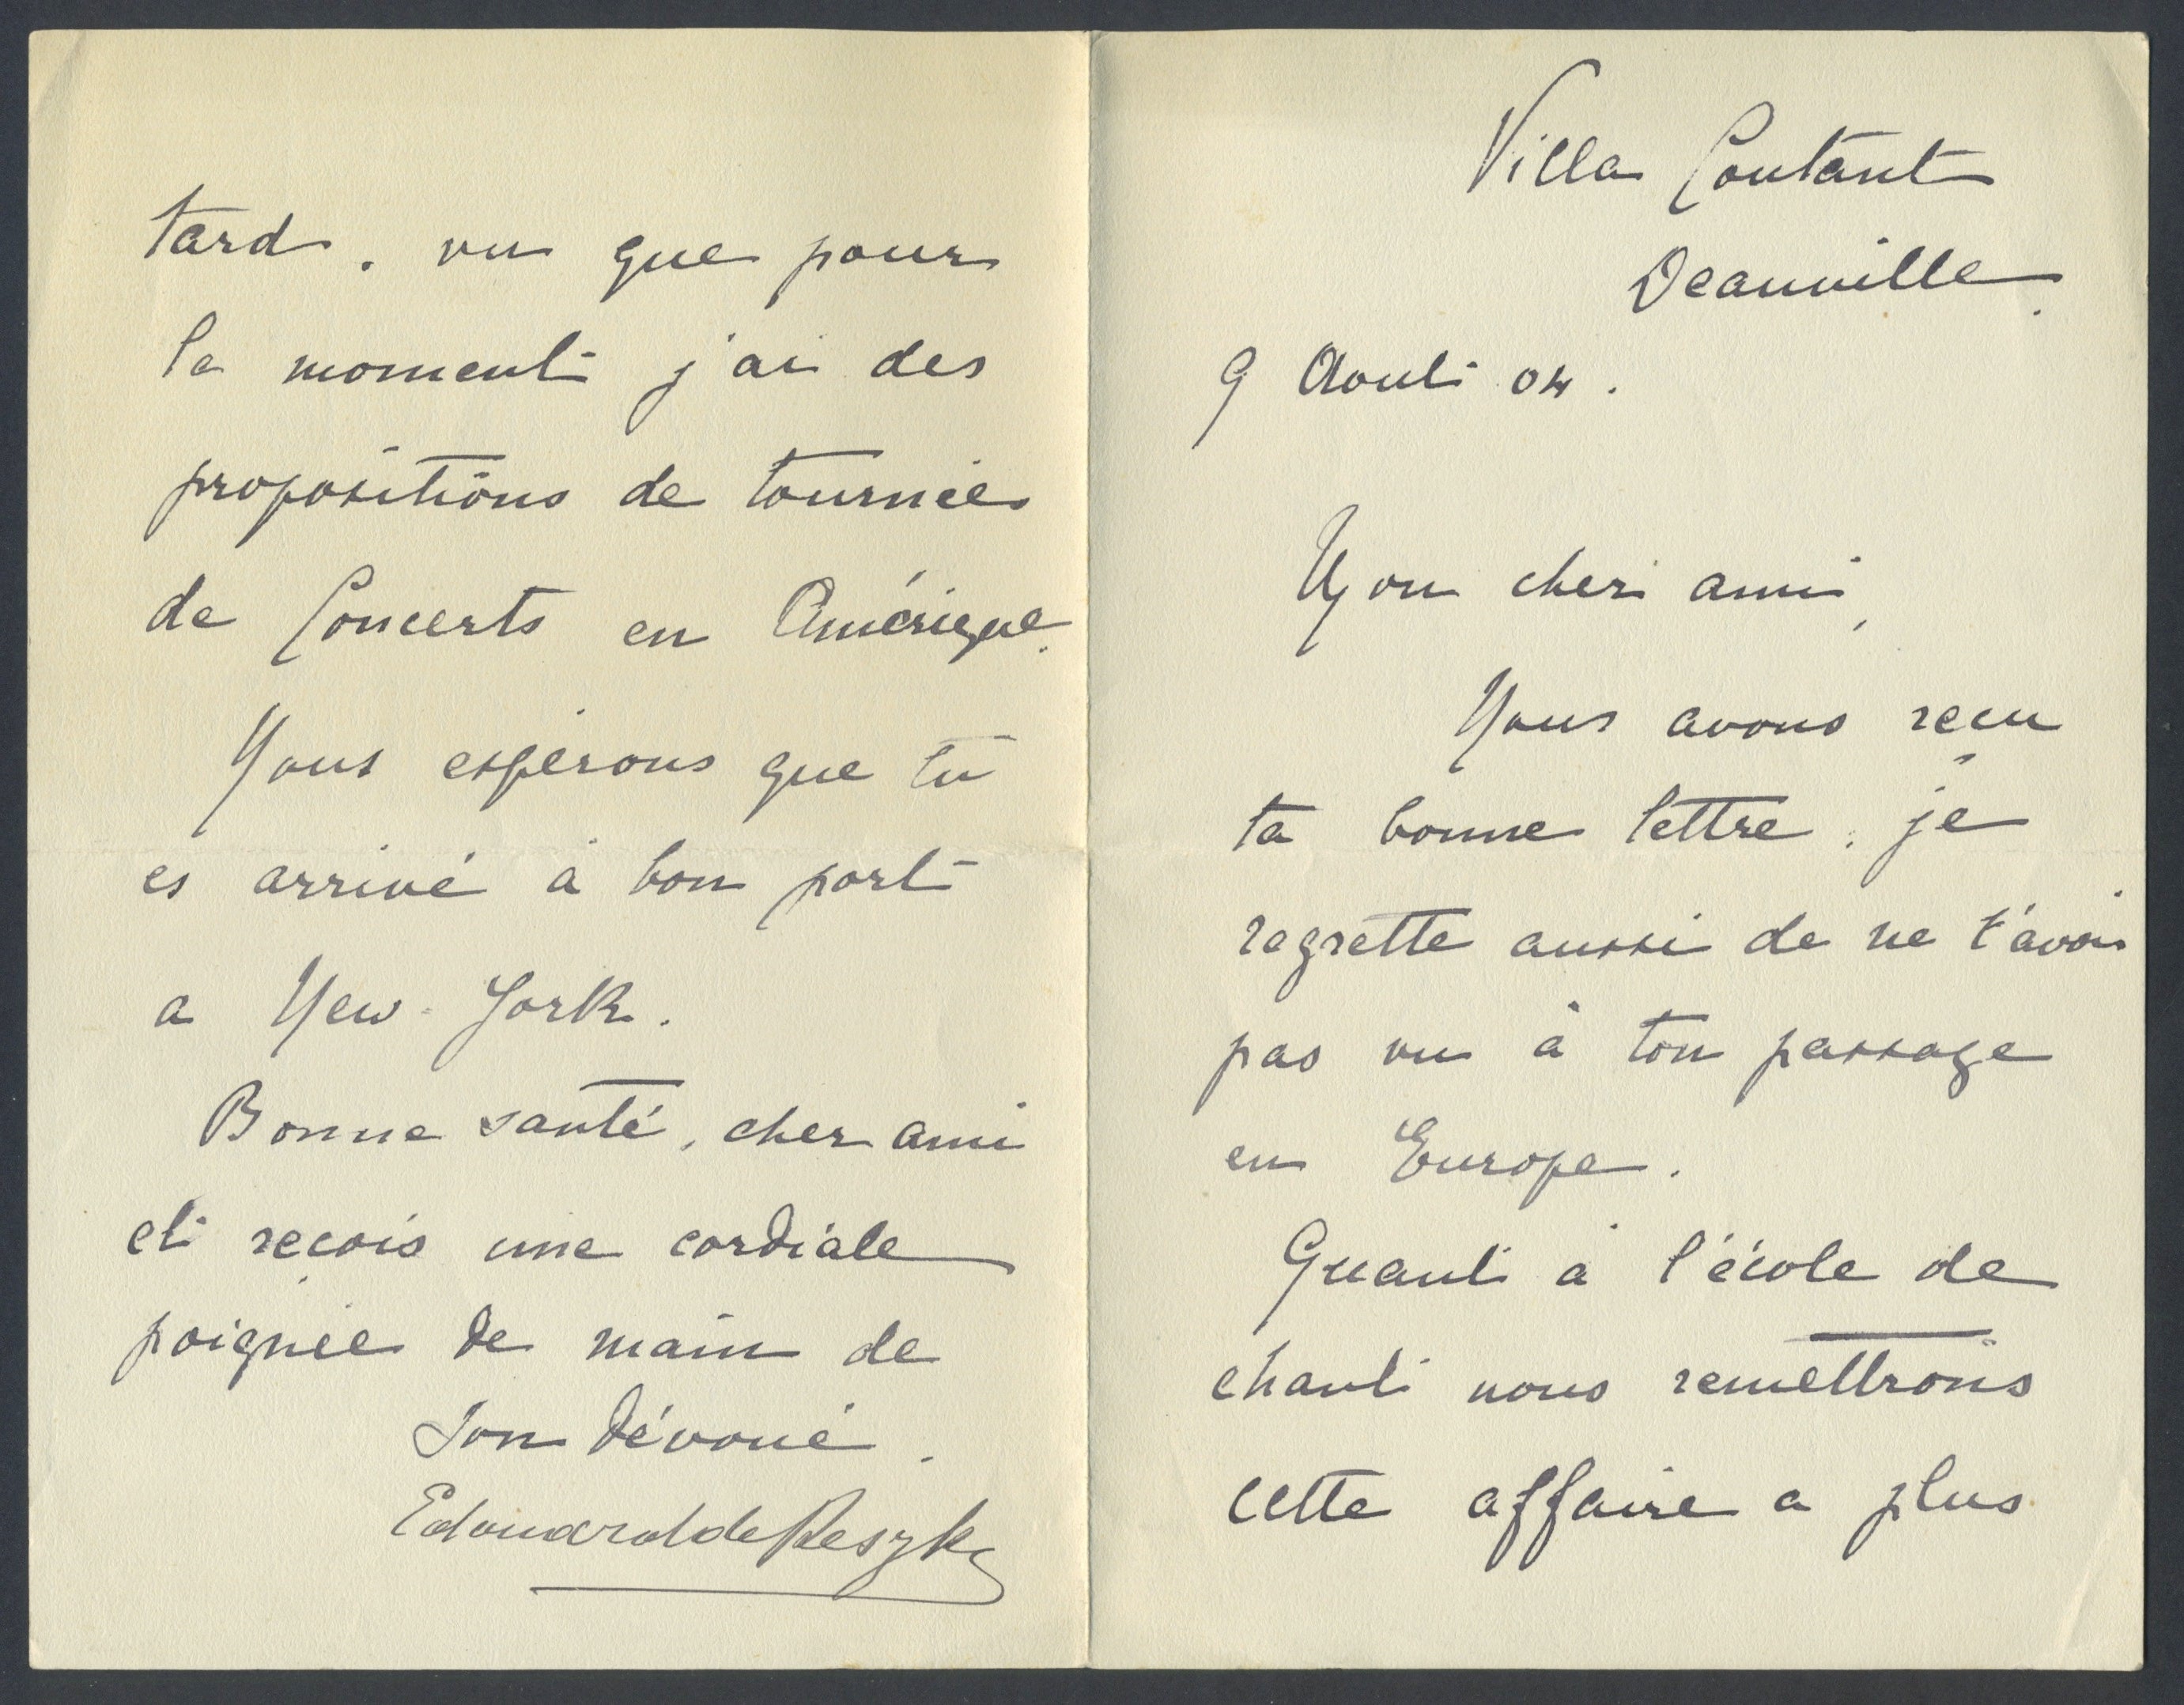 Villa Coutant
Deauville.
9 Août 04.
Mon cher ami,
Nous avons reçu
ta bonne lettre, je
regrette aussi de ne t'avoir
pas vu à ton passage
en Europe.
Quant à l'école de
chant nous remettrons
cette affaire a plus
tard, vu que pour
le moment j'ai des
propositions de tournées
de Concerts en Amérique.
Nous espérons que tu
es arrivé à bon port
a New-York.
Bonne santé, cher ami
et reçois une cordiale
poignée de main de
ton dévoué.
Edouard de Reszke